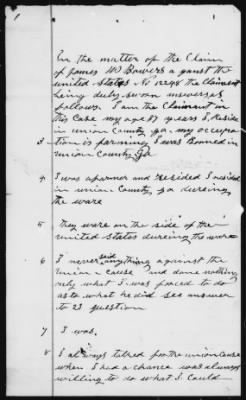 In the matter of the Claim
of James W Bowers against the
united States No 12298 the Claimant
being duly sworn answers as
follows. I am the Claimant in
this Case my age 87 years I reside
in union County ga, my occupa
3 tion is farming I was Borned in
union County Ga
4 I was afarmer and resided I resided
in union County ga dureing
the ware
5 They ware on the side of the
united States dureing the ware
6 I never said anything against the
union cause and done nothing
only what I was forced to do
as to what he did see answer
to 23 question
7 I was,
8 I always talked for the union Cause
when I had a chance was always
willing to do what I could